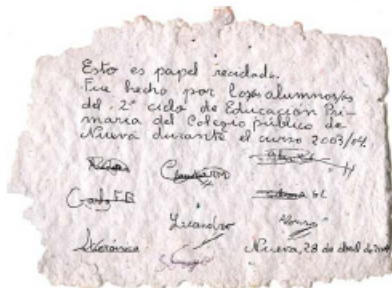 Esto es papel reciclado.
Fue hecho por los alumnos/as
del 2º ciclo de Educación Pri-
maria del Colegio público de
Nueva durante el curso 2003/04.
Carlos
Leandro
Alonso
Verónica
Nueva, 28 de abril de 2004